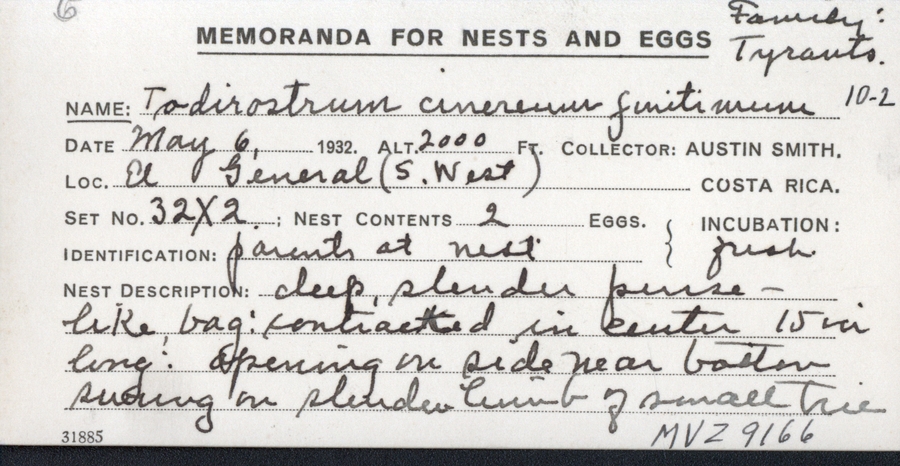 6
Family:
MEMORANDA FOR NESTS AND EGGS
Tyrants.
NAME: Todirostrum cinereum finitimum 10-2
DATE May 6, 1932. ALT. 2000 FT. COLLECTOR: AUSTIN SMITH.
LOC. El General (S. West) COSTA RICA.
SET NO. 32X2 ; NEST CONTENTS 2 EGGS. { INCUBATION:
IDENTIFICATION: parents at nest { fresh
NEST DESCRIPTION: deep, slender purse-
like bag: contracted in center 15 in
long: opening on side near bottom
swung on slender limb of small tree
31885
MVZ 9166